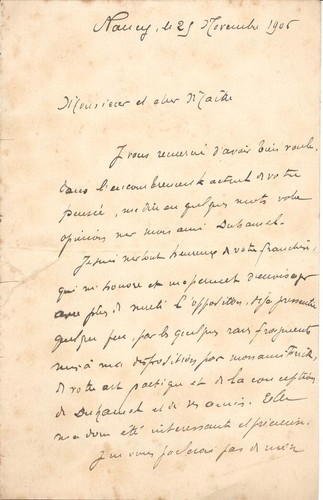 Nancy, le 25 Novembre 1906
Monsieur et cher Maître
Je vous remercie d'avoir bien voulu,
dans l'encombrement actuel de votre
pensée, me dire en quelques mots votre
opinion sur mon ami Duhamel.
Je suis surtout heureux de votre franchise,
qui m'honore et me permet d'envisager
avec plus de l'opposition, déjà pressentie
quelque peu, par les quelques rares fragments
mis à ma disposition par mon ami
de votre art poétique et de la conception
de Duhamel et de ses amis. Elle
m'a donc été intéressante et précieuse.
Je ne vous parlerai pas de